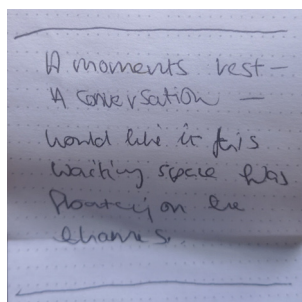 A moments rest —
A conversation —
would like it this
waiting space was
floating on the
thames.